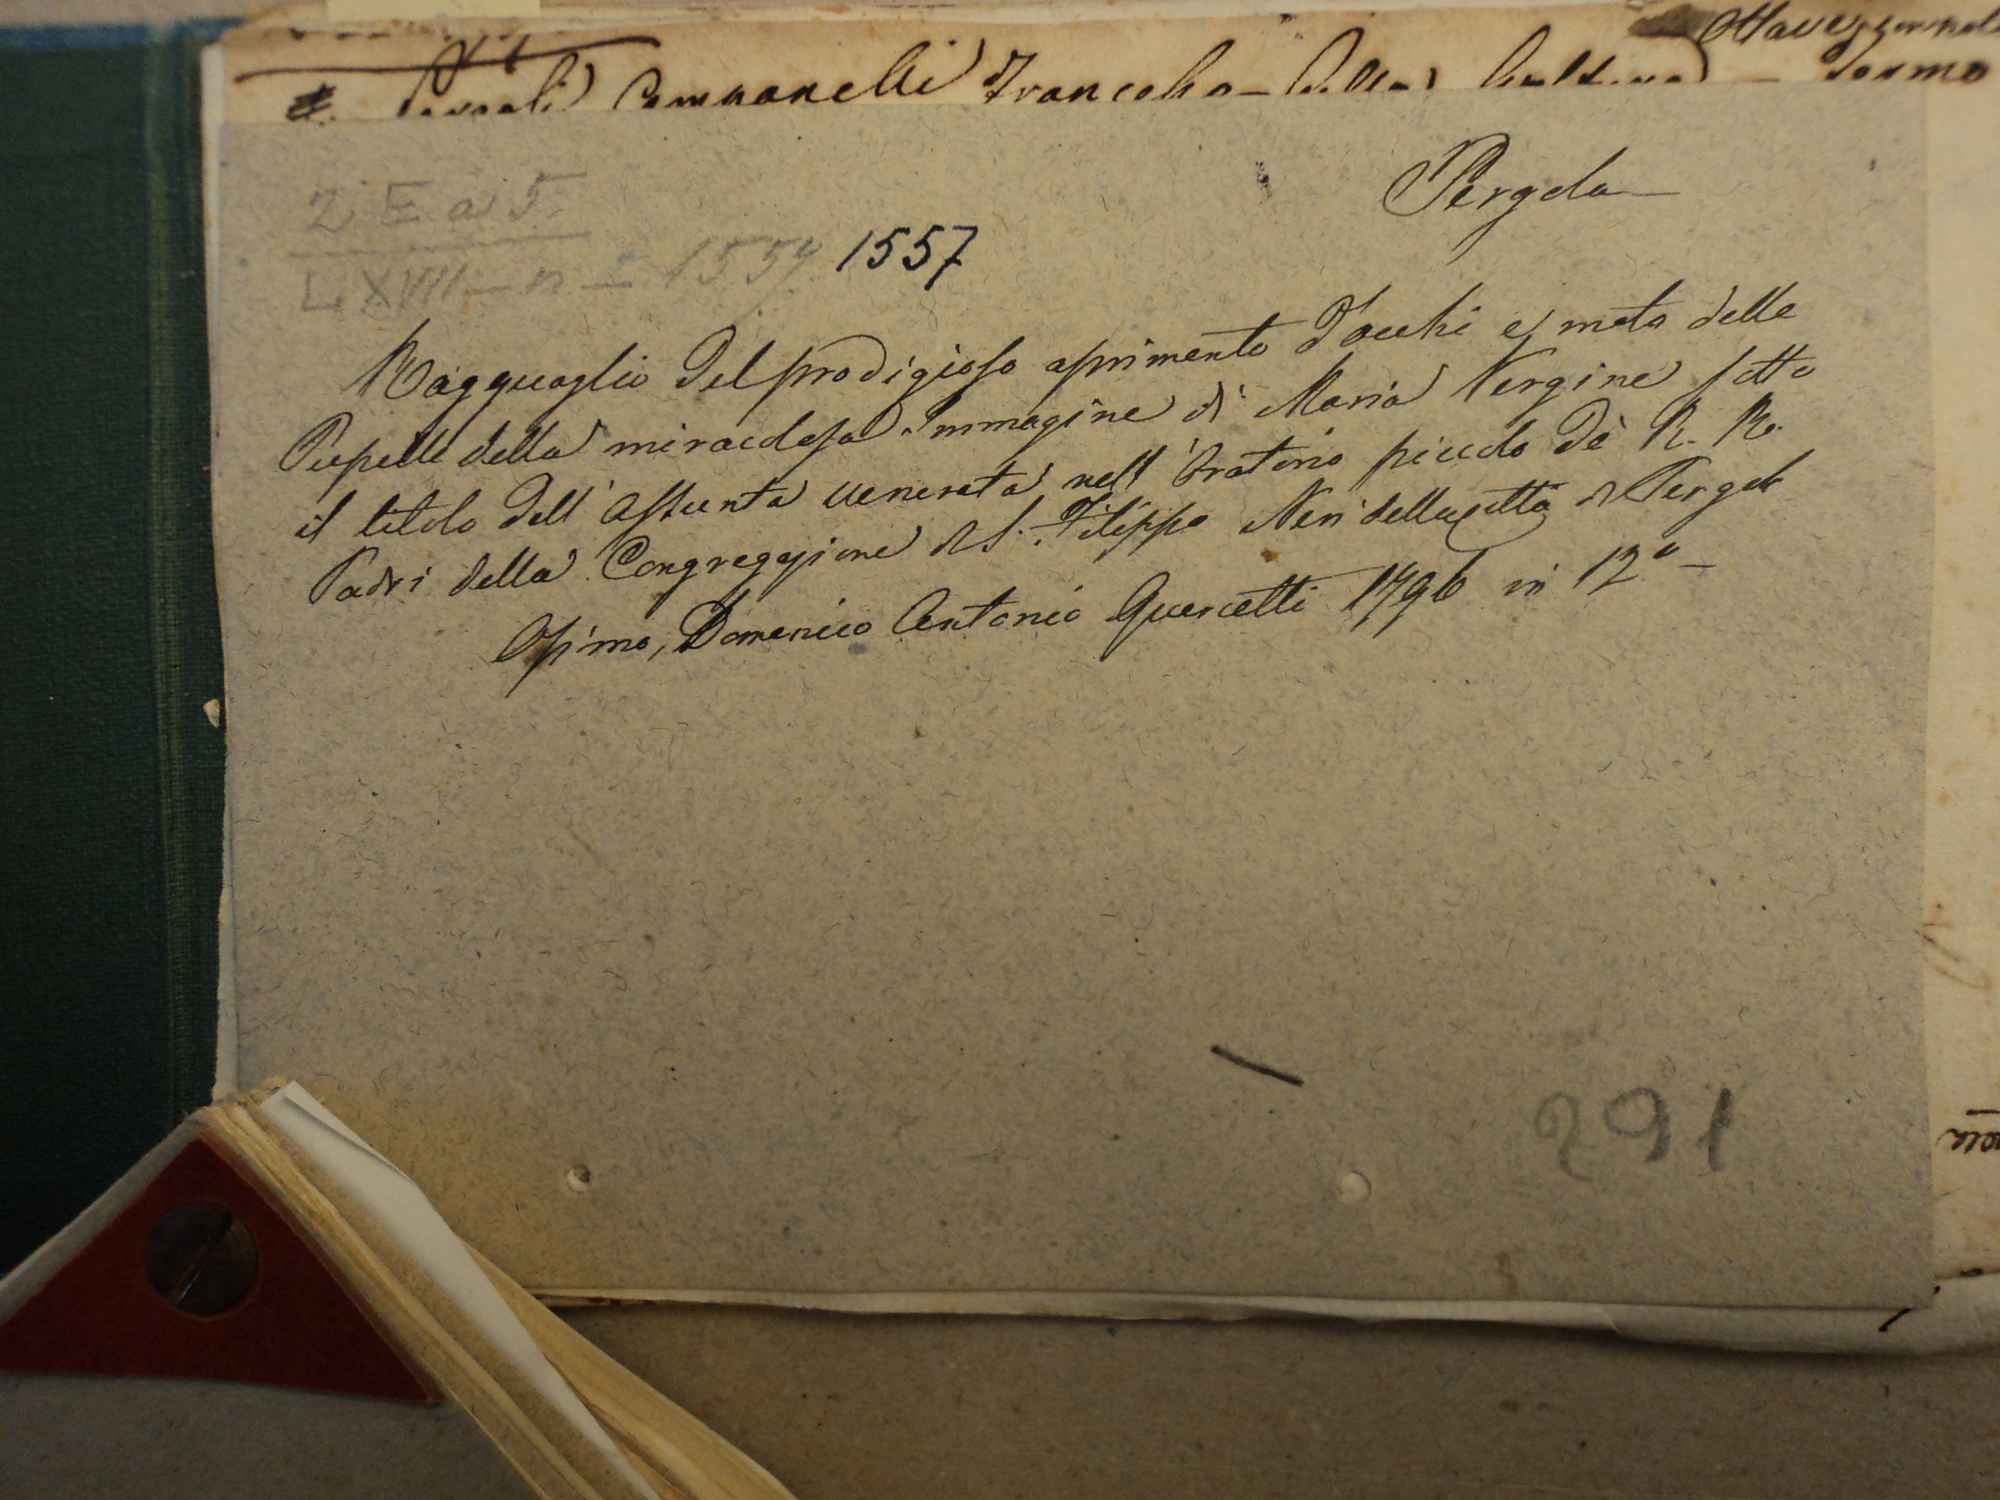 Campanelli Francesco
Fermo
Pergola
2 E a 5
LXVII - n - 1557 1557
Ragguaglio del prodigioso aprimento d'occhi e moto delle
Pupille della miracolosa Immagine di Maria Vergine sotto
il titolo dell'Assunta venerata nell'Oratorio piccolo de R. R.
Padri della Congregazione di S. Filippo Neri della città di Pergola
Osimo, Domenico Antonio Quercetti 1796 in 12° -
291